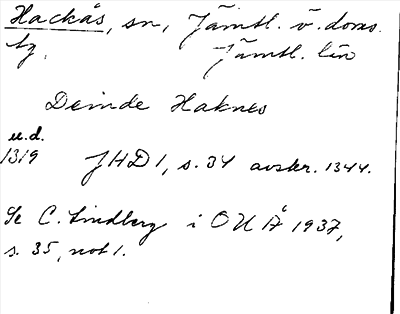 Hackås, sn, Jämtl. v. doms.
tg. Jämtl. län
Deinde Haknes
u.d.
1319 JHD 1, s. 34 avskr. 1344.
Se C. Lindberg i OUÅ 1937,
s. 35, not 1.